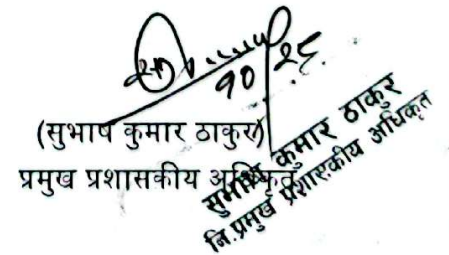 (सुभाष कुमार ठाकुर)
प्रमुख प्रशासकीय अधिकृत
सुभाष कुमार ठाकुर
नि.प्रमुख प्रशासकीय अधिकृत